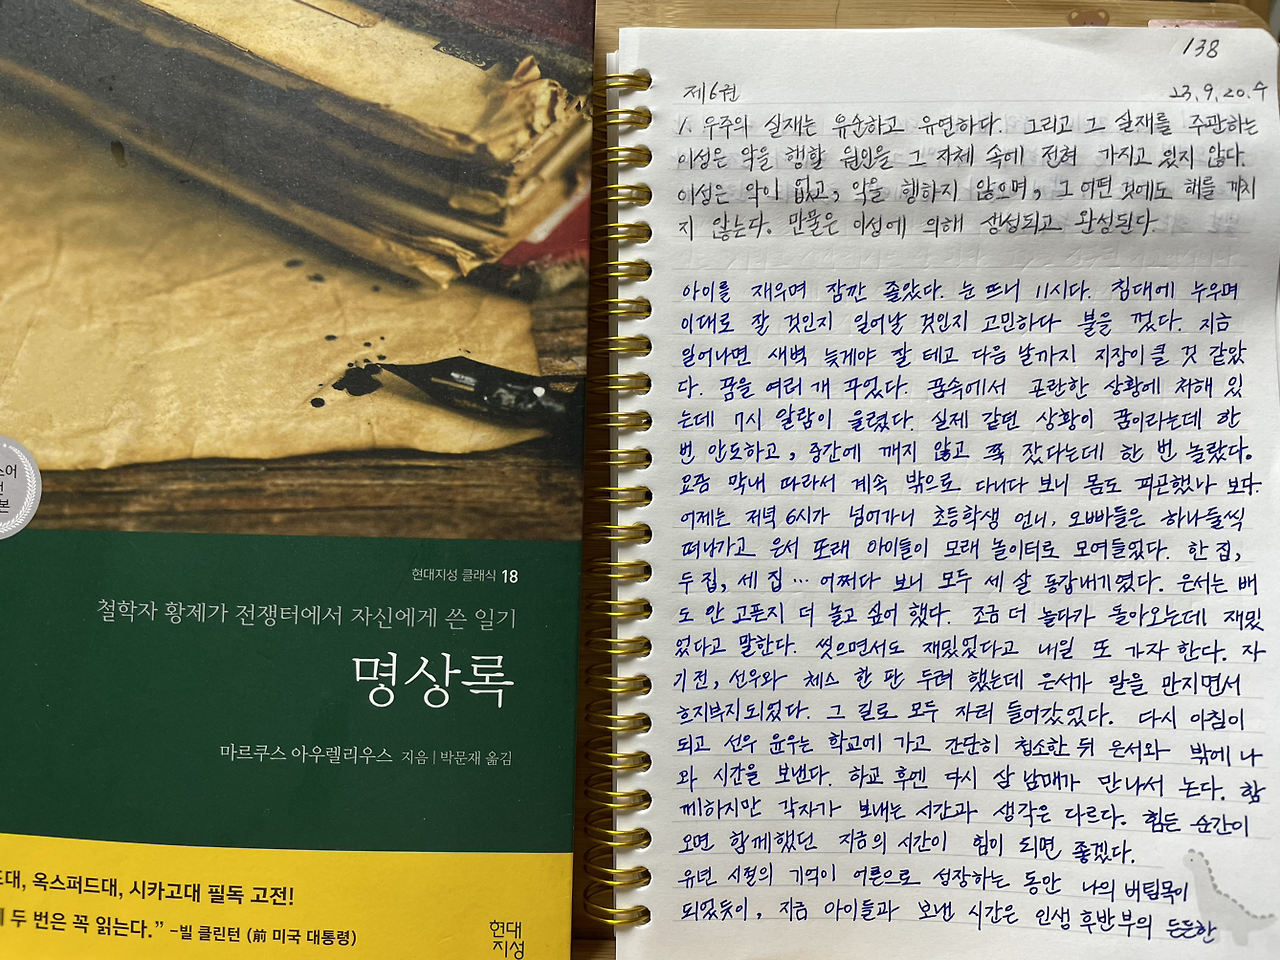 스어
전
본
현대지성 클래식 18
철학자 황제가 전쟁터에서 자신에게 쓴 일기
명상록
마르쿠스 아우렐리우스 지음 | 박문재 옮김
대, 옥스퍼드대, 시카고대 필독 고전!
두 번은 꼭 읽는다.” -빌 클린턴 (前 미국 대통령)
현대
지성
138
제6권 23.9.20.수
1. 우주의 실재는 유순하고 유연하다. 그리고 그 실재를 주관하는
이성은 악을 행할 원인을 그 자체 속에 전혀 가지고 있지 않다.
이성은 악이 없고, 악을 행하지 않으며, 그 어떤 것에도 해를 끼치
지 않는다. 만물은 이성에 의해 생성되고 완성된다.
아이를 재우며 잠깐 졸았다. 눈 뜨니 11시다. 침대에 누우며
이대로 잘 것인지 일어날 것인지 고민하다 불을 껐다. 지금
일어나면 새벽 늦게야 잘 테고 다음 날까지 지장이 클 것 같았
다. 꿈을 여러 개 꾸었다. 꿈속에서 곤란한 상황에 처해 있
는데 7시 알람이 울렸다. 실제 같던 상황이 꿈이라는데 한
번 안도하고, 중간에 깨지 않고 쭉 잤다는데 한 번 놀랐다.
요즘 막내 따라서 계속 밖으로 다니다 보니 몸도 피곤했나 보다.
어제는 저녁 6시가 넘어가니 초등학생 언니, 오빠들은 하나둘씩
떠나가고 은서 또래 아이들이 모래 놀이터로 모여들었다. 한 집,
두 집, 세 집… 어쩌다 보니 모두 세 살 동갑내기였다. 은서는 배
도 안 고픈지 더 놀고 싶어 했다. 조금 더 놀다가 돌아오는데 재밌
었다고 말한다. 씻으면서도 재밌었다고 내일 또 가자 한다. 자
기 전, 선우와 체스 한 판 두려 했는데 은서가 말을 만지면서
흐지부지되었다. 그 길로 모두 자러 들어갔었다. 다시 아침이
되고 선우 윤우는 학교에 가고 간단히 청소한 뒤 은서와 밖에 나
와 시간을 보낸다. 하교 후엔 다시 삼 남매가 만나서 논다. 함
께하지만 각자가 보내는 시간과 생각은 다르다. 힘든 순간이
오면 함께했던 지금의 시간이 힘이 되면 좋겠다.
유년 시절의 기억이 어른으로 성장하는 동안 나의 버팀목이
되었듯이, 지금 아이들과 보낸 시간은 인생 후반부의 든든한